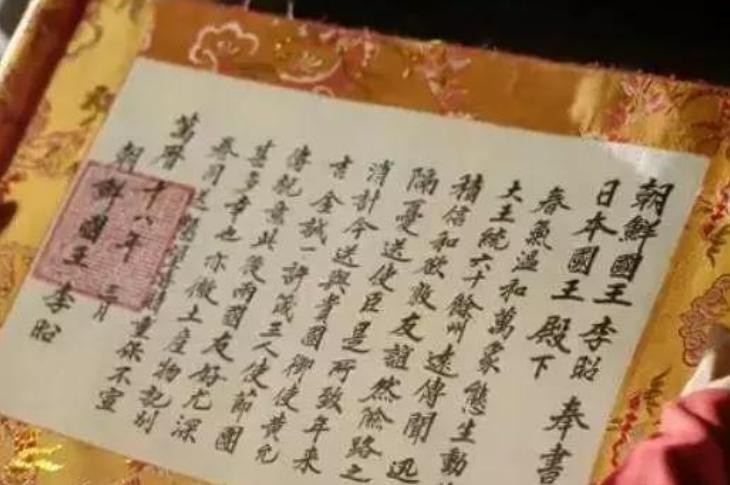 朝鮮國王 李昭 奉書
日本國王 殿下
春氣溫和萬象態生動
大王統六十餘州遠傳聞迅
積信和欲敦友誼然險路之
隔憂送使臣是所致年來
消計今送與貴國御使黃允
吉金誠一許筬三人使節團
傳統意此後兩國友好尤深
甚多幸也亦儆土産物記別
春同送重保不宣
萬曆十八年三月
朝鮮國王李昭